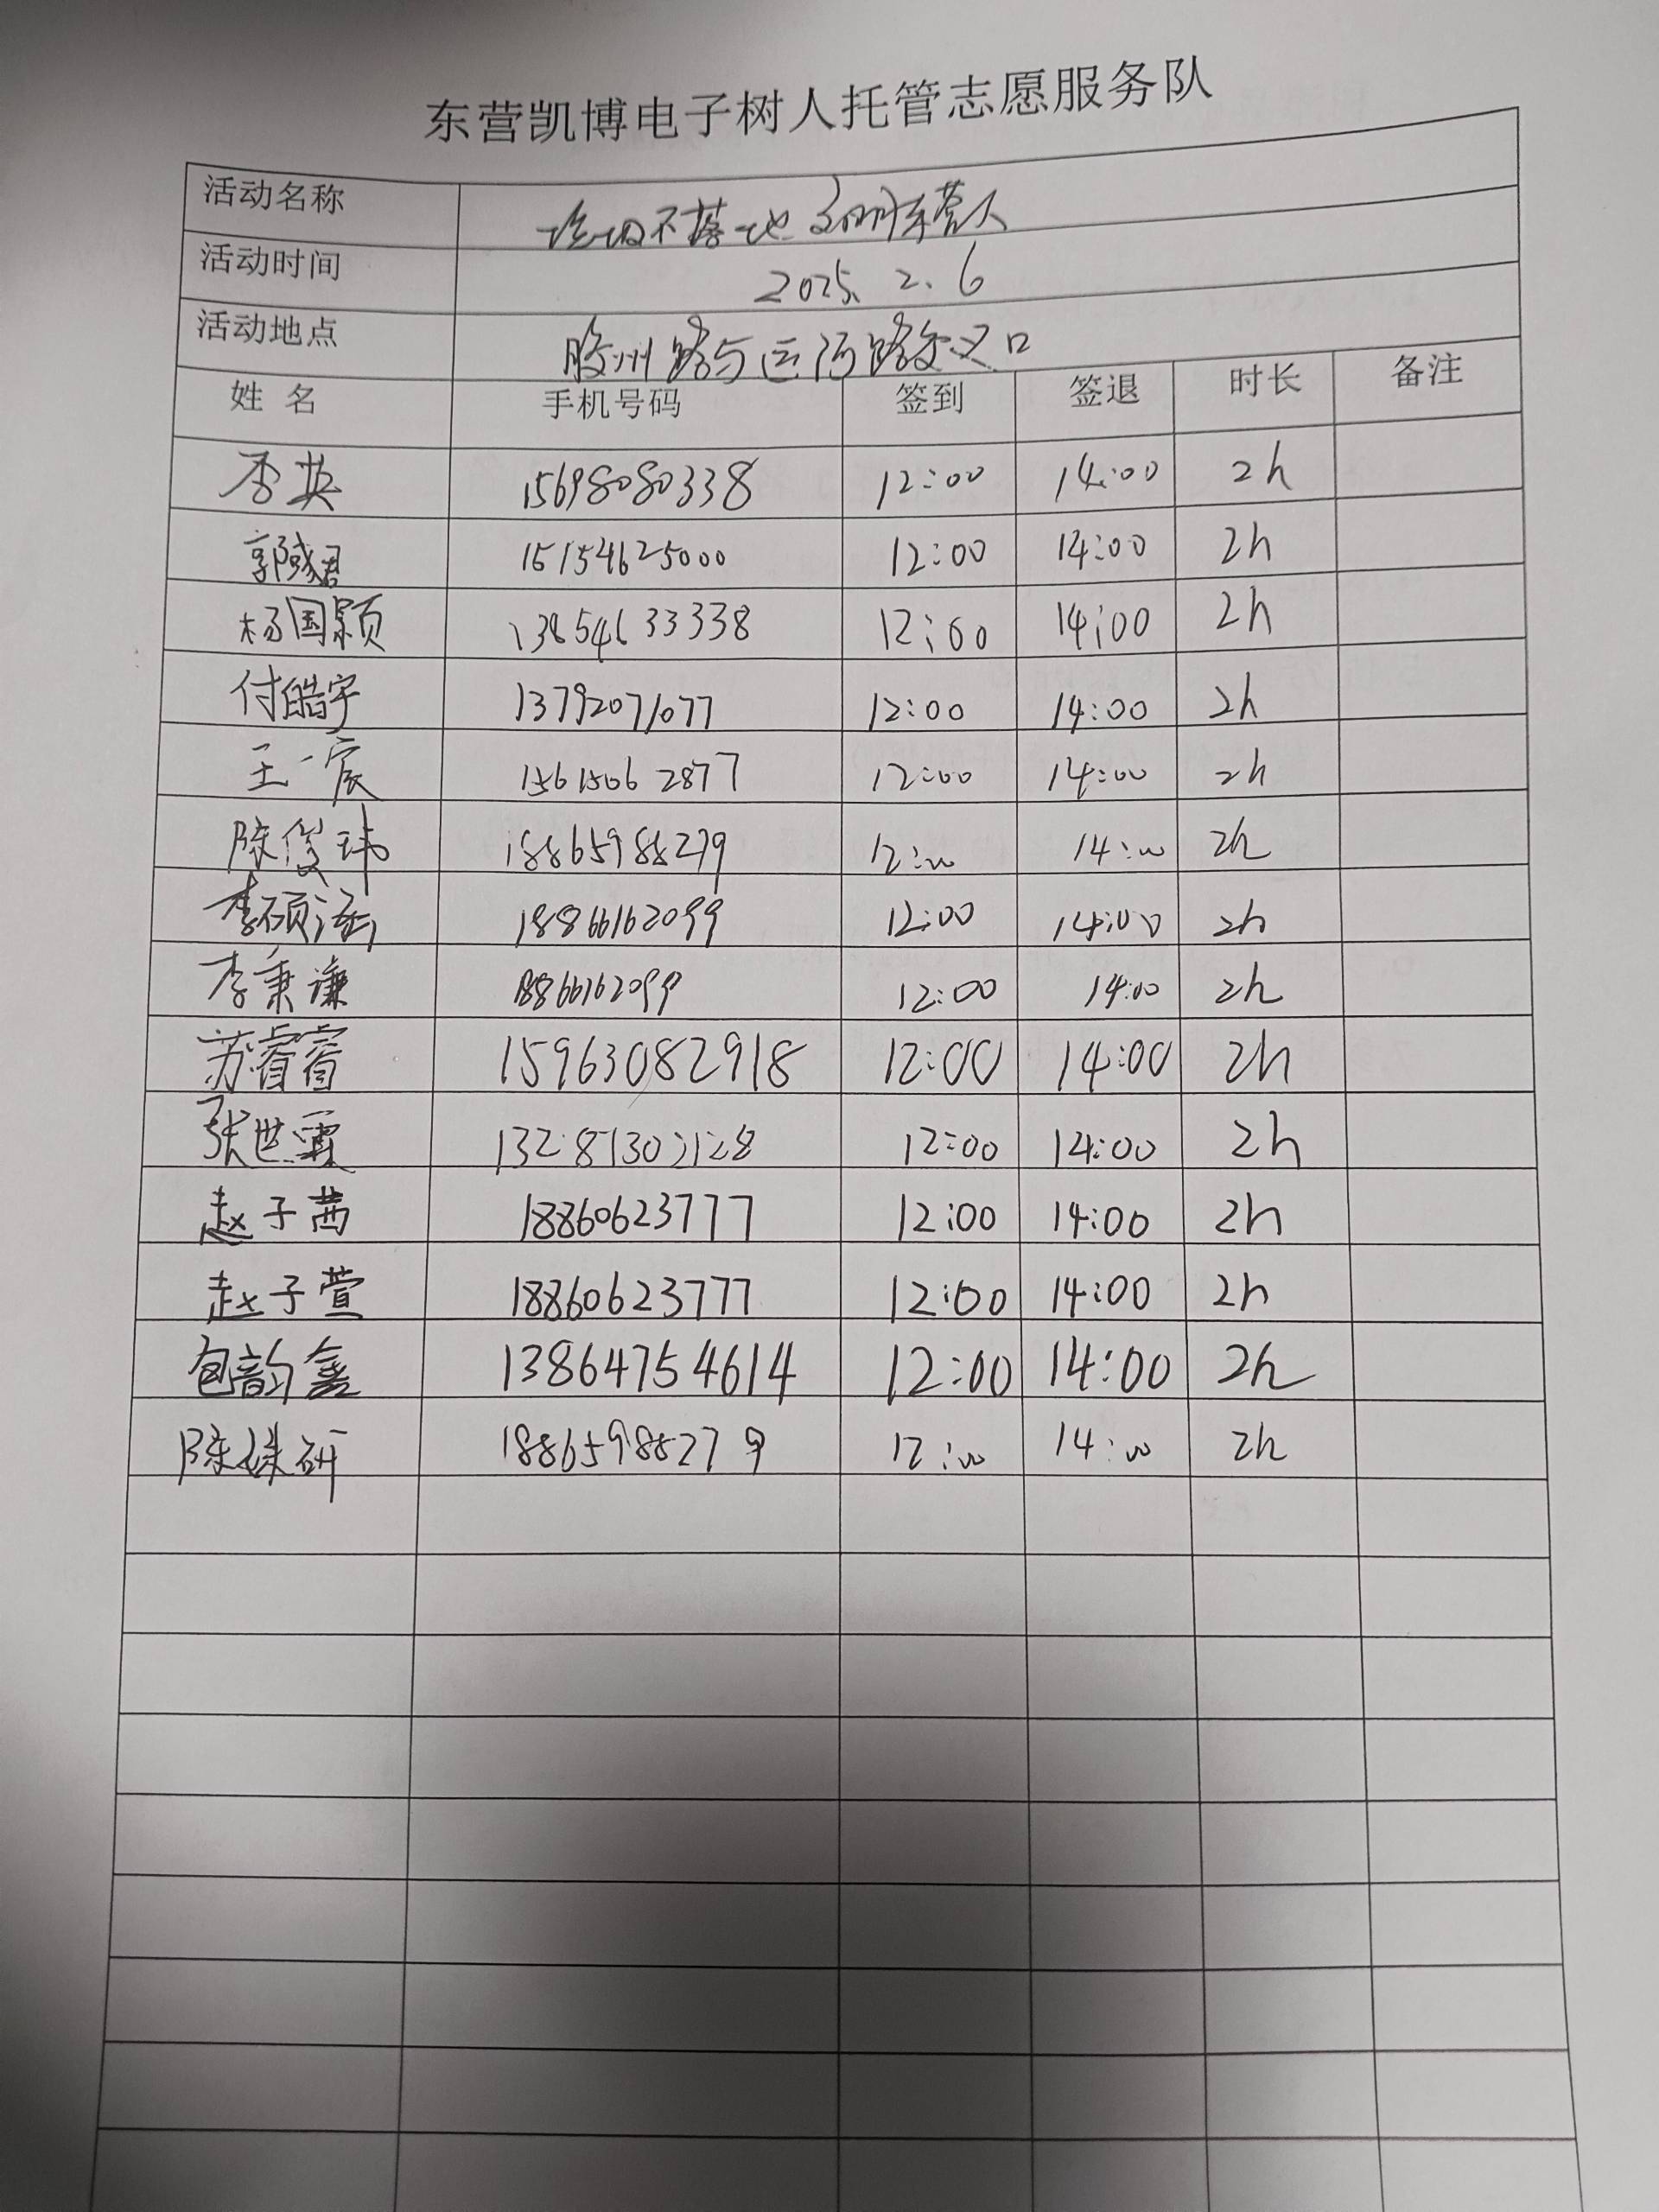 东营凯博电子树人托管志愿服务队
活动名称 垃圾不落地 文明东营人
活动时间 2025.2.6
活动地点 胶州路与运河路交叉口
姓名 手机号码 签到 签退 时长 备注
李英 15698080338 12:00 14:00 2h
15154625000 12:00 14:00 2h
杨国颢 13854633338 12:00 14:00 2h
付皓宇 13792071077 12:00 14:00 2h
王一宸 15615062877 12:00 14:00 2h
陈俊玮 18865988279 12:00 14:00 2h
李硕 18866162099 12:00 14:00 2h
李秉谦 18866162099 12:00 14:00 2h
苏睿睿 15963082918 12:00 14:00 2h
张世霖 12:00 14:00 2h
赵子茜 18860623777 12:00 14:00 2h
赵子萱 18860623777 12:00 14:00 2h
包韵鑫 13864754614 12:00 14:00 2h
陈 研 18865988279 12:00 14:00 2h